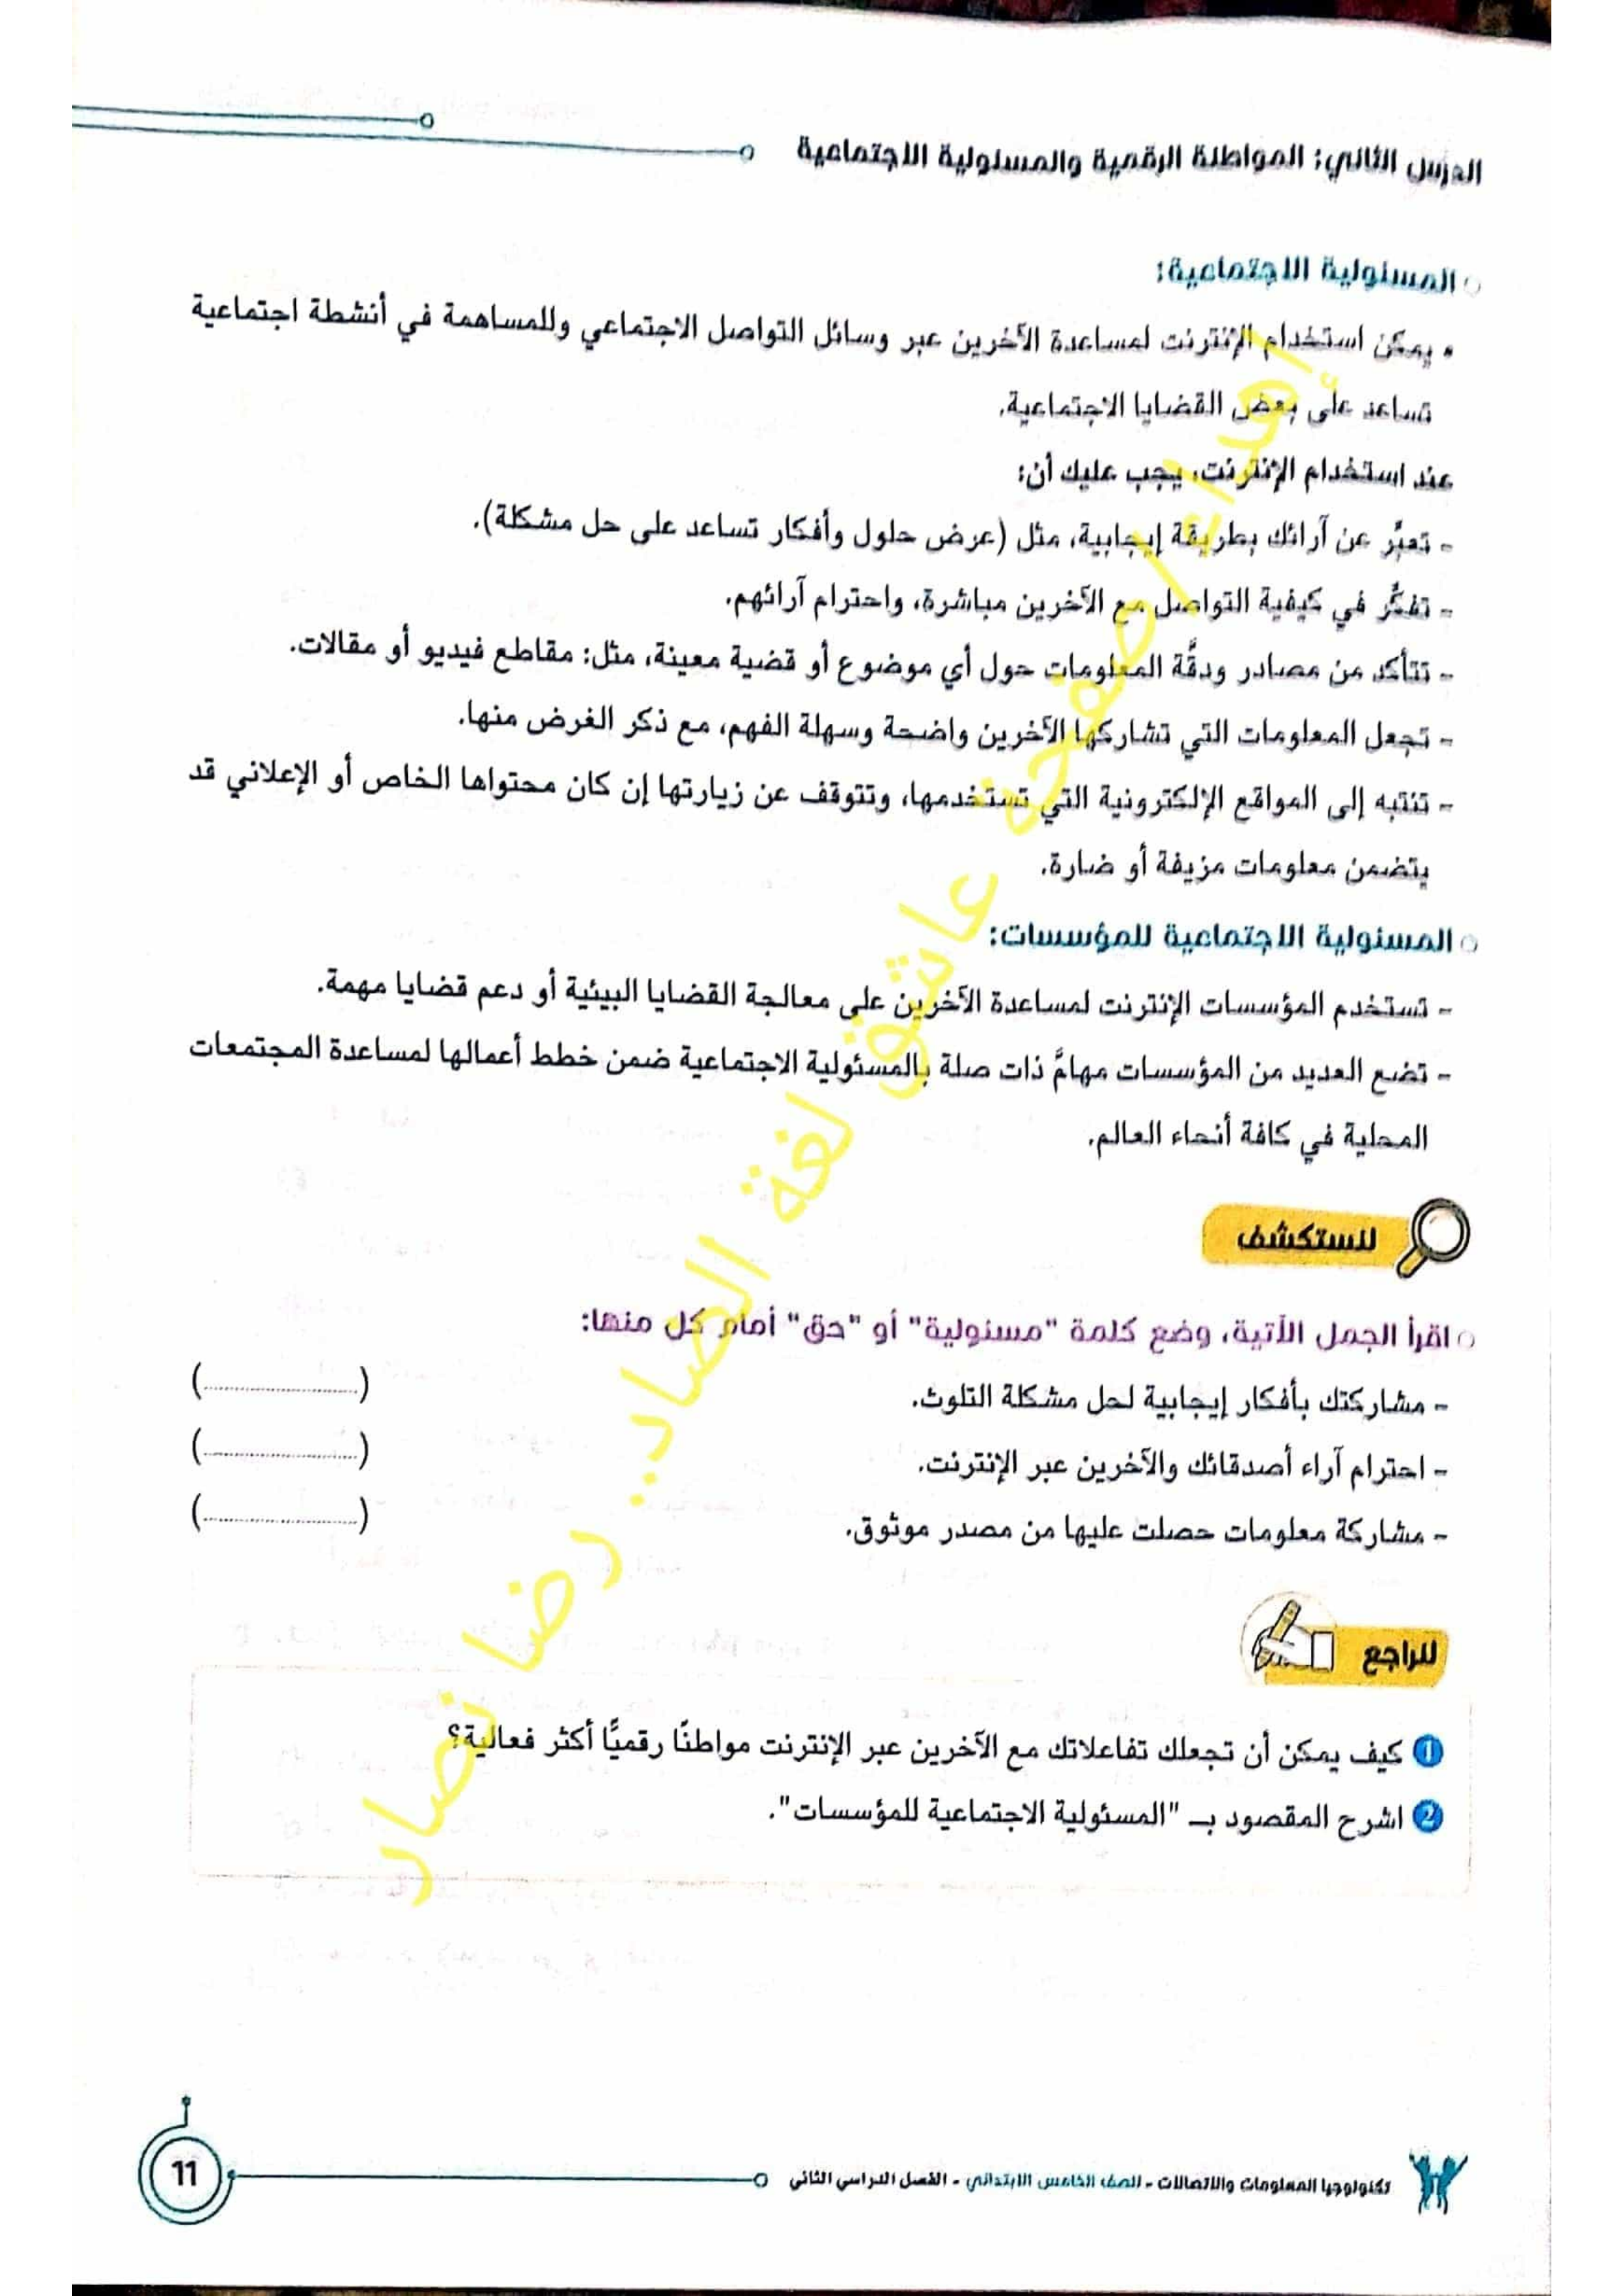 الدرس الثاني: المواطنة الرقمية والمسئولية الاجتماعية
المسئولية الاجتماعية:
• يمكن استخدام الإنترنت لمساعدة الآخرين عبر وسائل التواصل الاجتماعي وللمساهمة في أنشطة اجتماعية
تساعد على بعض القضايا الاجتماعية.
عند استخدام الإنترنت، يجب عليك أن:
- تعبِّر عن آرائك بطريقة إيجابية، مثل (عرض حلول وأفكار تساعد على حل مشكلة).
- تفكِّر في كيفية التواصل مع الآخرين مباشرة، واحترام آرائهم.
- تتأكد من مصادر ودقَّة المعلومات حول أي موضوع أو قضية معينة، مثل: مقاطع فيديو أو مقالات.
- تجعل المعلومات التي تشاركها الآخرين واضحة وسهلة الفهم، مع ذكر الغرض منها.
- تنتبه إلى المواقع الإلكترونية التي تستخدمها، وتتوقف عن زيارتها إن كان محتواها الخاص أو الإعلاني قد
يتضمن معلومات مزيفة أو ضارة.
المسئولية الاجتماعية للمؤسسات:
- تستخدم المؤسسات الإنترنت لمساعدة الآخرين على معالجة القضايا البيئية أو دعم قضايا مهمة.
- تضع العديد من المؤسسات مهامَّ ذات صلة بالمسئولية الاجتماعية ضمن خطط أعمالها لمساعدة المجتمعات
المحلية في كافة أنحاء العالم.
لنستكشف
اقرأ الجمل الآتية، وضع كلمة "مسئولية" أو "حق" أمام كل منها:
- مشاركتك بأفكار إيجابية لحل مشكلة التلوث. (........................)
- احترام آراء أصدقائك والآخرين عبر الإنترنت. (........................)
- مشاركة معلومات حصلت عليها من مصدر موثوق. (........................)
لنراجع
1 كيف يمكن أن تجعلك تفاعلاتك مع الآخرين عبر الإنترنت مواطنًا رقميًّا أكثر فعالية؟
2 اشرح المقصود بـ "المسئولية الاجتماعية للمؤسسات".
إهداء لصفحة عاشق لغة الضاد.. رضا نصار
تكنولوجيا المعلومات والاتصالات - الصف الخامس الابتدائي - الفصل الدراسي الثاني
11